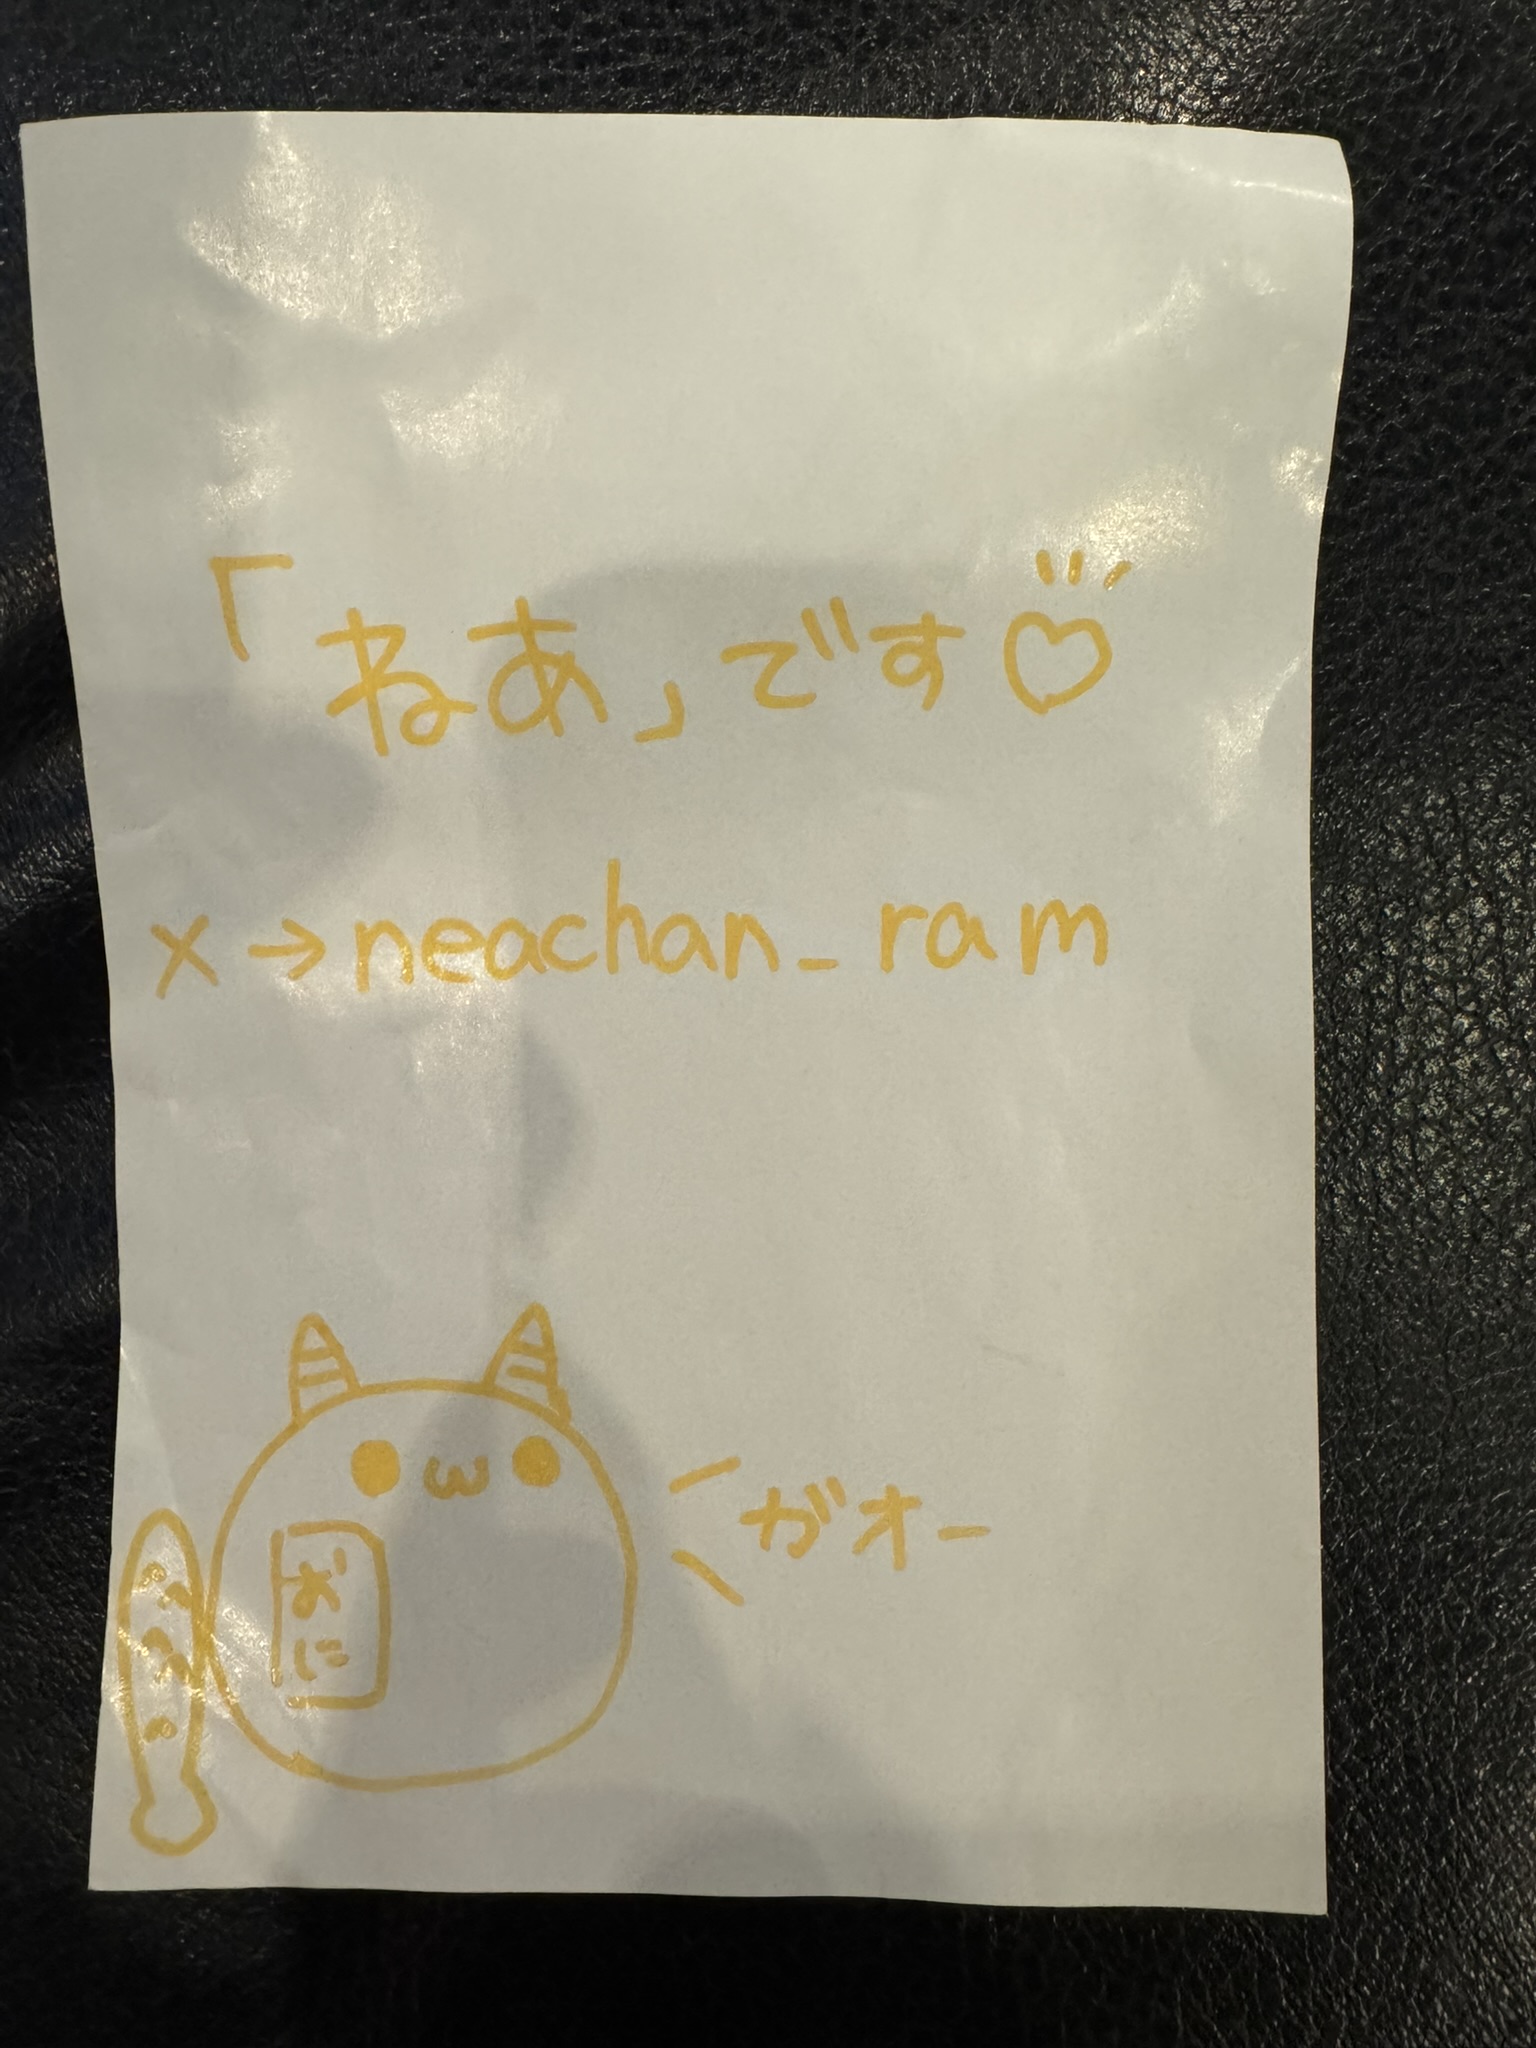 「ねあ」です♡
X→neachan_ram
ガオー
おに